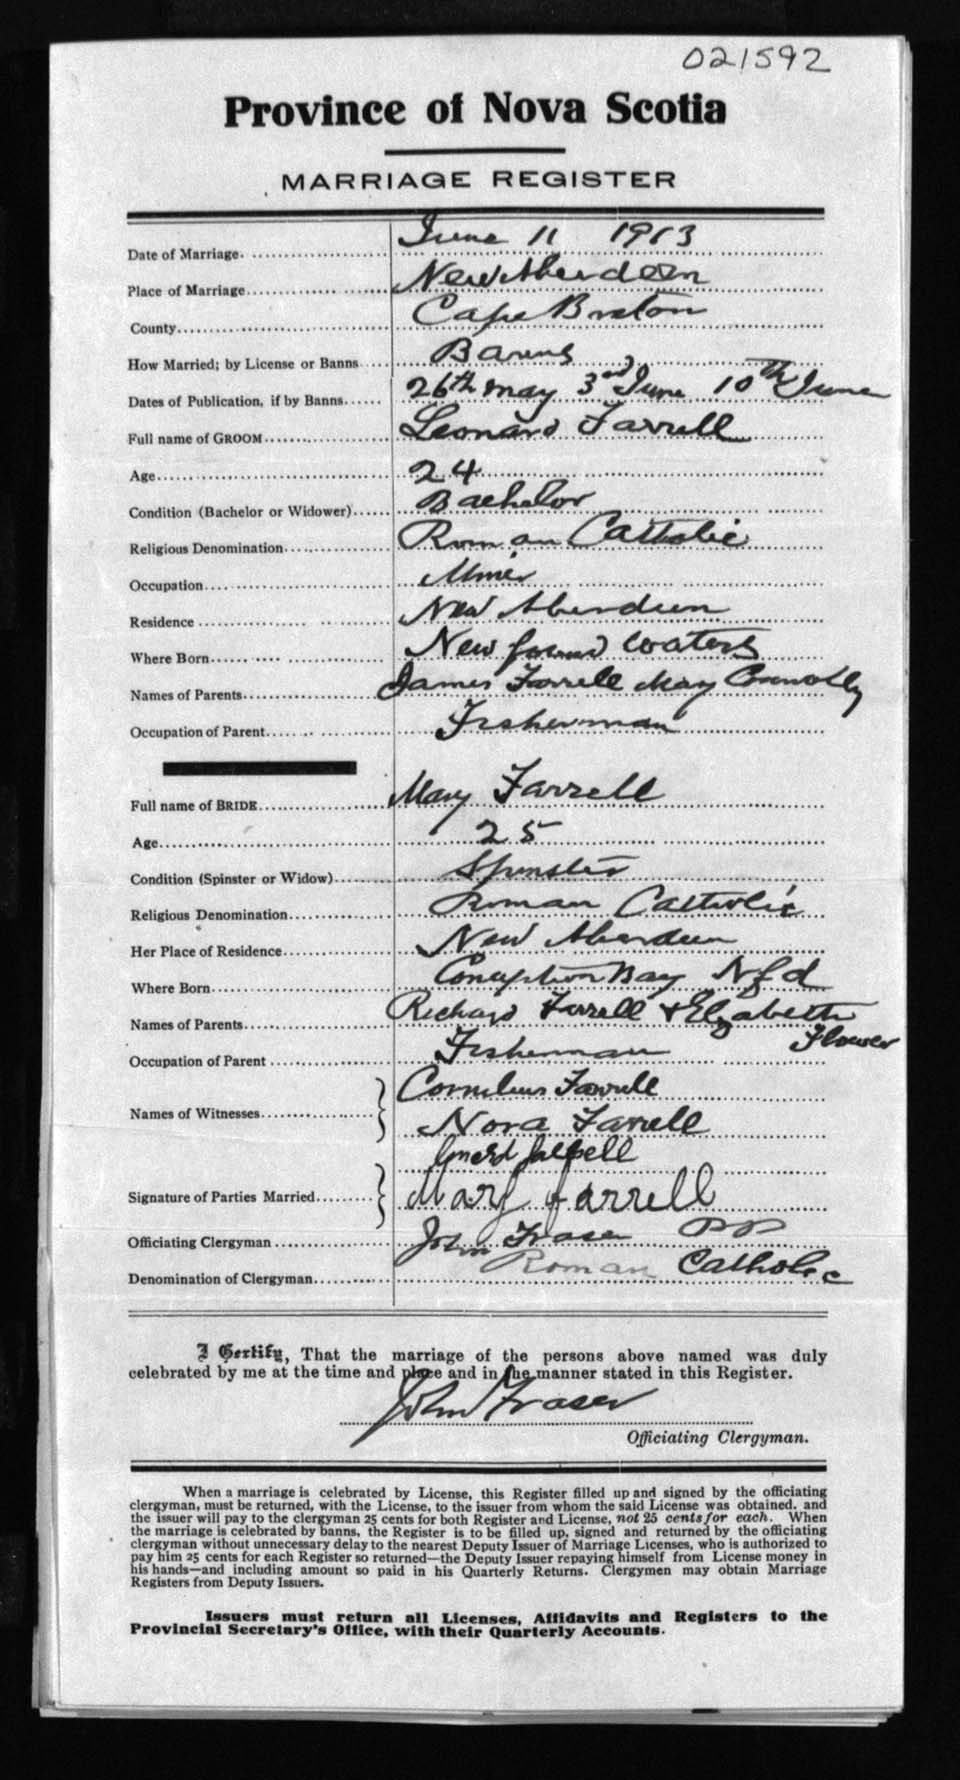 021592
Province of Nova Scotia
MARRIAGE REGISTER
Date of Marriage June 11 1913
Place of Marriage New Aberdeen
County Cape Breton
How Married; by License or Banns Banns
Dates of Publication, if by Banns 26th may 3rd June 10th June
Full name of GROOM Leonard Farrell
Age 24
Condition (Bachelor or Widower) Bachelor
Religious Denomination Roman Catholic
Occupation Miner
Residence New Aberdeen
Where Born New found waters
Names of Parents James Farrell May Connolly
Occupation of Parent Fisherman
Full name of BRIDE Mary Farrell
Age 25
Condition (Spinster or Widow) Spinster
Religious Denomination Roman Catholic
Her Place of Residence New Aberdeen
Where Born Conception Bay Nfd
Names of Parents Richard Farrell & Elizabeth
Flower
Occupation of Parent Fisherman
Names of Witnesses Cornelius Farrell
Nora Farrell
Signature of Parties Married Mary farrell
Officiating Clergyman John Fraser PP
Denomination of Clergyman Roman Catholic
I Certify, That the marriage of the persons above named was duly
celebrated by me at the time and place and in the manner stated in this Register.
John Fraser
Officiating Clergyman.
When a marriage is celebrated by License, this Register filled up and signed by the officiating
clergyman, must be returned, with the License, to the issuer from whom the said License was obtained, and
the issuer will pay to the clergyman 25 cents for both Register and License, not 25 cents for each. When
the marriage is celebrated by banns, the Register is to be filled up, signed and returned by the officiating
clergyman without unnecessary delay to the nearest Deputy Issuer of Marriage Licenses, who is authorized to
pay him 25 cents for each Register so returned—the Deputy Issuer repaying himself from License money in
his hands—and including amount so paid in his Quarterly Returns. Clergymen may obtain Marriage
Registers from Deputy Issuers.
Issuers must return all Licenses, Affidavits and Registers to the
Provincial Secretary's Office, with their Quarterly Accounts.